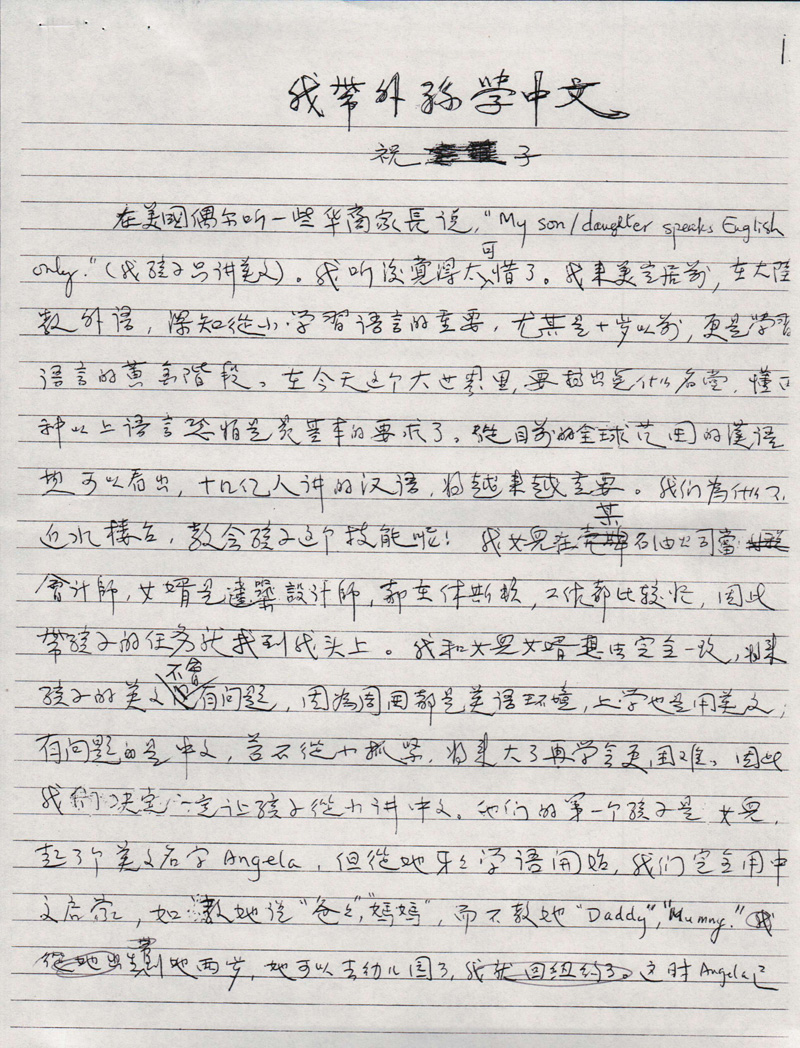 1
我带外孙学中文
祝 子
在美國偶尔听一些华裔家長说,"My son/daughter speaks English
only."(我孩子只讲英文)。我听後覺得太可惜了。我来美定居前,在大陸
教外语,深知從小学習语言的重要,尤其是十岁以前,更是学習
语言的黄金階段。在今天这个大世界里,要搞出些什么名堂,懂
种以上语言恐怕是最基本的要求了。從目前的全球范围的漢语
热可以看出,十几亿人讲的汉语,将越来越重要。我们為什么不
近水楼台,教会孩子这个技能呢!我女兒在某石油公司當
會计師,女婿是建築設计師,都在休斯顿,工作都比较忙,因此
带孩子的任务就找到我头上。我和女兒女婿想法完全一致,将来
孩子的英文不會有问题,因為周围都是英语环境,上学也是用英文;
有问题的是中文,若不從小抓紧,将来大了再学会更困难。因此
我们决定一定让孩子從小讲中文。他们的第一个孩子是女兒,
起了个英文名字Angela,但從她牙牙学语開始,我们完全用中
文启蒙,如教她说"爸爸","媽媽",而不教她"Daddy","Mummy."
带到她两岁,她可以去幼儿园了,我就回纽约了。这时Angela已